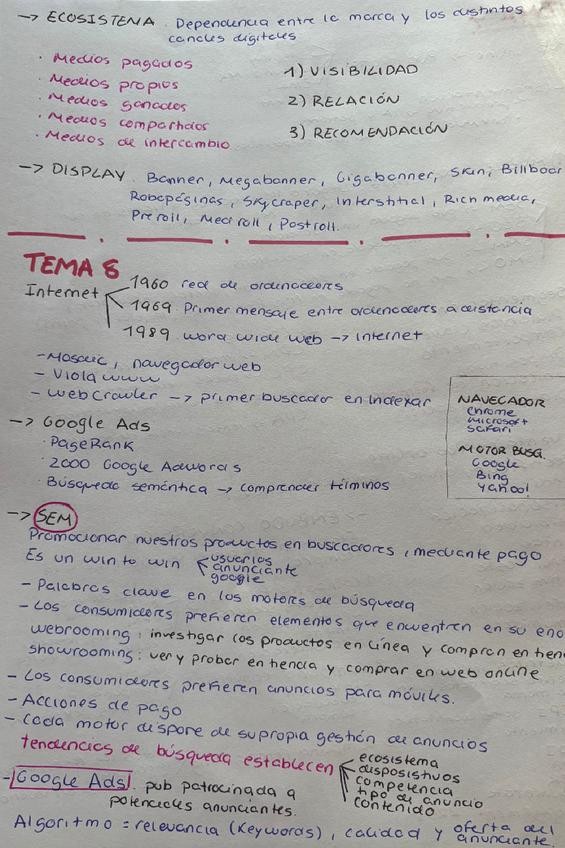 → ECOSISTEMA. Dependencia entre la marca y los distintos
canales digitales
· Medios pagados
· Medios propios
· Medios ganados
· Medios compartidos
· Medios de intercambio
1) VISIBILIDAD
2) RELACIÓN
3) RECOMENDACIÓN
→ DISPLAY. Banner, Megabanner, Gigabanner, Skin, Billboar
Robapáginas, Skycraper, Interstitial, Rich media,
Preroll, Mediroll, Postroll.
TEMA 8
Internet
1960 red de ordenadores
1969 Primer mensaje entre ordenadores a distancia
1989 word wide web → Internet
- Mosaic, navegador web
- Viola www
- webcrawler → primer buscador en indexar
NAVEGADOR
Chrome
Microsoft
Safari
MOTOR BUSQ.
Google
Bing
Yahoo!
→ Google Ads
· PageRank
· 2000 Google Adwords
· Búsqueda semántica → comprender téiminos
→ SEM
Promocionar nuestros productos en buscadores, mediante pago
Es un win to win
usuarios
anunciante
google
- Palabras clave en los motores de búsqueda
- Los consumidores prefieren elementos que encuentren en su eno
webrooming: investigar los productos en línea y compran en tien
showrooming: ver y probar en tienda y comprar en web online
- Los consumidores prefieren anuncios para móviles.
- Acciones de pago
- Cada motor dispone de su propia gestión de anuncios
tendencias de búsqueda establecen
ecosistema
disposistivos
competencia
tipo de anuncio
contenido
- Google Ads. pub patrocinada a
potenciales anunciantes.
Algoritmo = relevancia (Keywords), calidad y oferta del
anunciante.